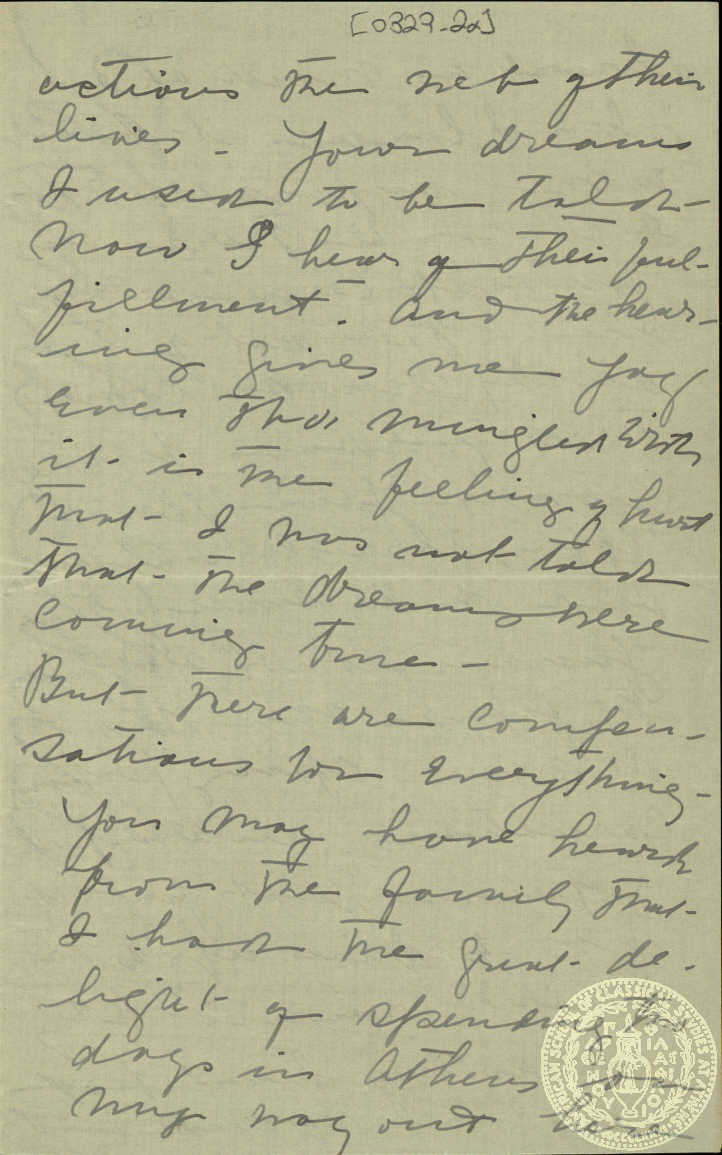 [0329-22]
actions the web of their
lives - Your dreams
I used to be told -
Now I hear of their ful-
fillment. And the hear-
ing gives me joy
even tho' mingled with
it - is the feeling of hurt
that - I was not told
that - the dreams were
coming true -
But - there are compen-
sations for everything -
You may have heard
from the family that -
I had the great - de-
light of spending two
days in Athens on
my way out here
AMERICAN SCHOOL OF CLASSICAL STUDIES AT ATHENS